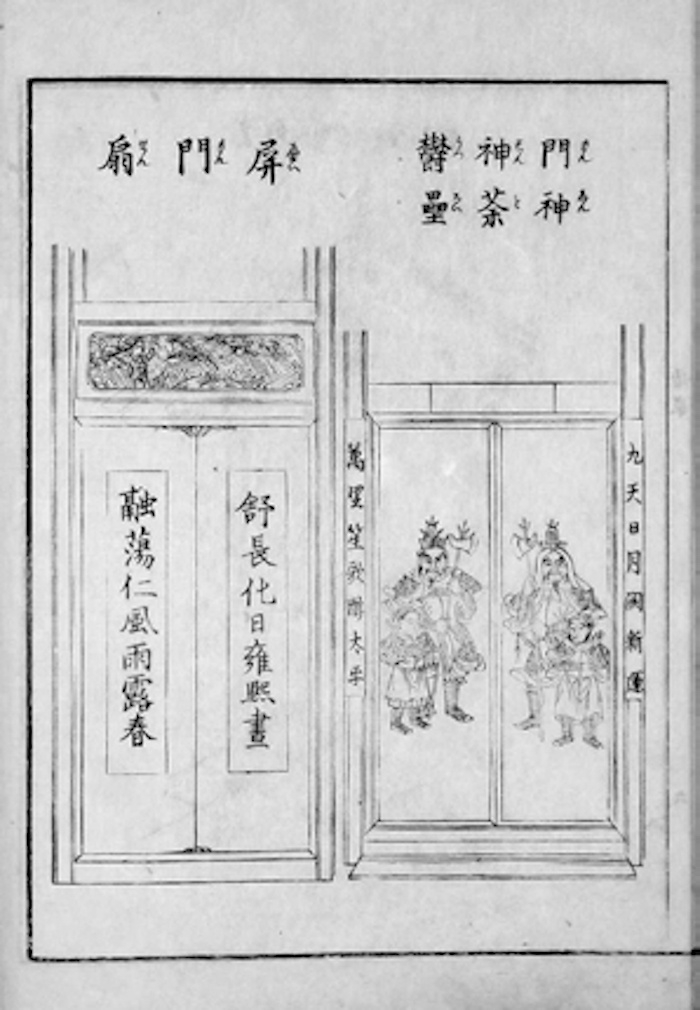 門神
神荼
鬱壘
九天日月開新運
萬里笙歌太平
屏門扇
舒長化日雍熙晝
融蕩仁風雨露春